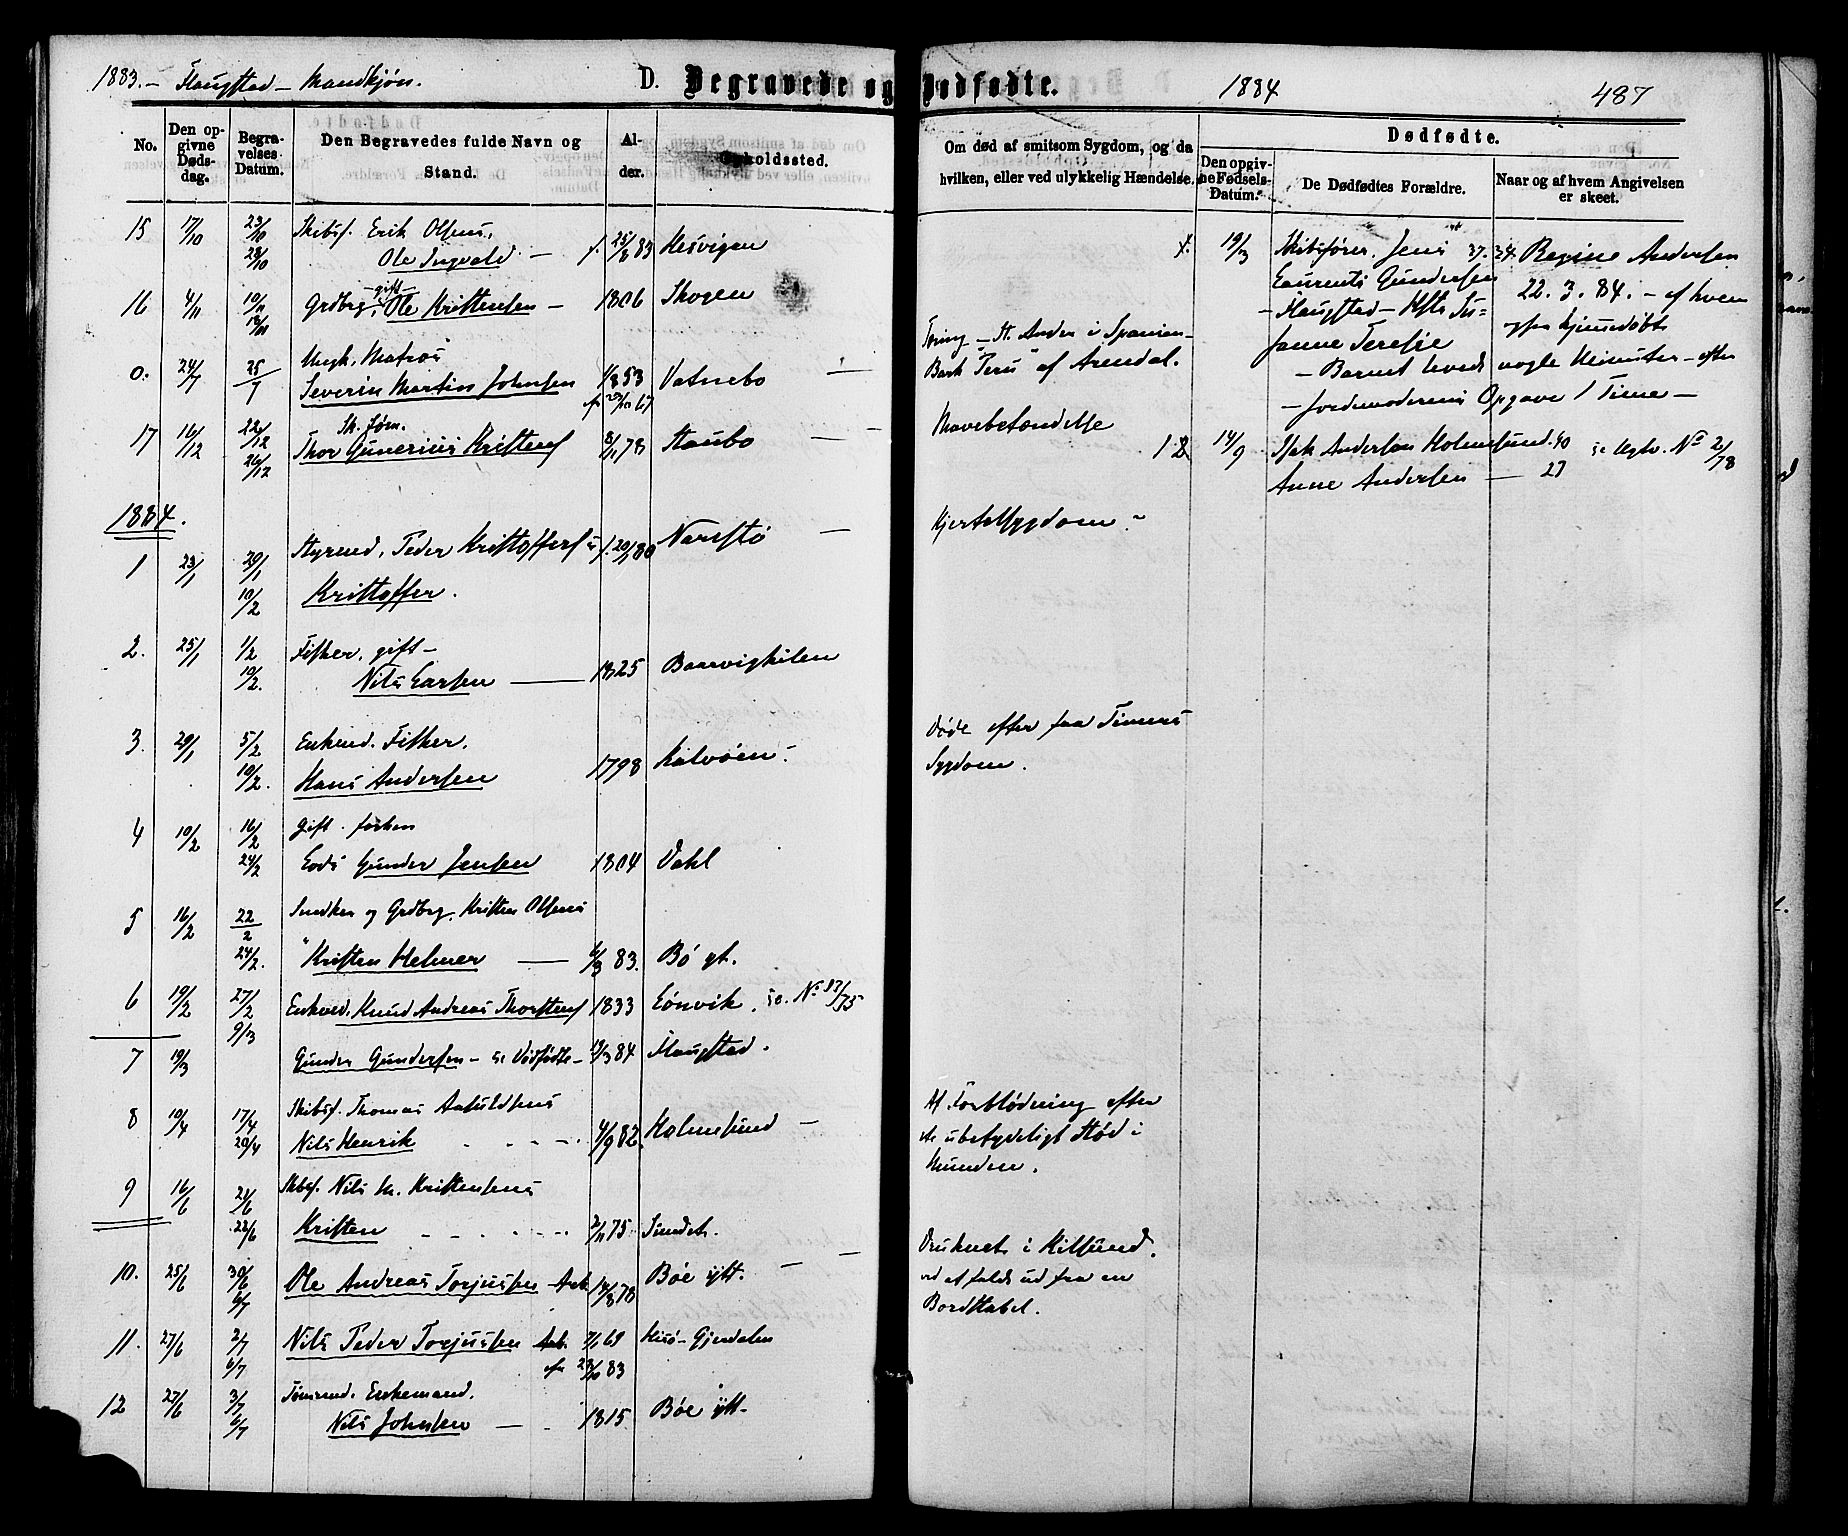 1883. – Flaugstad – Mandkjøn.
D. Begravede og Dødfødte.
1884
487
No.
Den opgivne Dødsdag.
Begravelses Datum.
Den Begravedes fulde Navn og Stand.
Alder.
Opholdssted.
Om død af smitsom Sygdom, og da hvilken, eller ved ulykkelig Hændelse.
Dødfødte.
Den opgivne Fødsels-Datum.
De Dødfødtes Forældre.
Naar og af hvem Angivelsen er skeet.
15 17/10 23/10 Skibsf. Erik Olsens,
28/10 Ole Ingvald. – f. 25/8 83 Kesvigen
16 4/11 10/11 Grdbrg. gift Ole Kristensen – 1806 Skogen
18/11
0. 24/7 25/7 Ungk. Matros
Severin Martin Johnsen 1/8 53 Vatnebo –
17 16/12 22/12 Sk. tøm.
26/12 Thor Gunerius Kristens 8/11 78 Staubo –
1884.
1 23/1 29/1 Styrmd. Peder Kristoffers's f. 20/ 80 Narestø –
10/2 Kristoffer.
2. 25/1 1/2 Fisker, gift –
10/2. Nils Larsen – 1825 Baarvigkilen
3. 29/1 5/2 Enkmd. Fisker.
10/2. Hans Andersen 1798 Kalvøen.
4 10/2 16/2 Gift.
24/2 Lods Gunder Jensen 1804 Dahl
5 16/2 22/2 Snedker og Grdbrg. Kristen Olsens
24/2. Kristen Helmer – 6/3 83. Bö yt.
6 19/2 27/2 Enkmd. Knud Andreas Thorstens 1833 Lönvik. se. No 83/75
9/3
7 19/3 Gunder Gundersen – se Dødfødte – 19/3 84 Flaugstad.
8 10/4 17/4 Skibsf. Thomas Aanuldsens
20/4 Nils Henrik 4/9 82. Holmesund –
9 16/6 21/6 Skibsf. Nils M. Kristensens
22/6 Kristen 2/11 75. Sundet.
10. 25/6 30/6 Ole Andreas Torjussen – Arb. 14/8 78 Bøe ytt. –
6/7
11. 27/6 2/7 Nils Peder Torjussen Arb. 7/1 69 Hisø – Gjendalen
6/7 28/10 83
12 27/6 3/7 Tømmd. Enkemand.
6/7 Nils Johnsen – 1815 Bøe ytt –
Tæring – St. Ander i Spanien –
Bark "Peru" af Arendal.
Mavebetændelse
Hjertesygdom –
Døde efter faa Timers
Sygdom.
Af Forblødning efter
et ubetydeligt Stød i
Munden.
Druknet i Kilsund.
ved at falde ud fra en
Bordstabel.
1. 19/3 Skibsfører Jens 37. 34. Regine Andersen
Laurents Gundersen 22. 3. 84. – af hvem
– Flaugstad – Hst. Su= ogsaa hjemmedøbt
Janne Teresie
– Barnet levede nogle Minuter – efter
– Jordemoderens Opgave 1 Time –
1 2. 14/9 Isak Anderson Holmesund 40 se Ugtv. No 2/78
Anne Andersen – 27